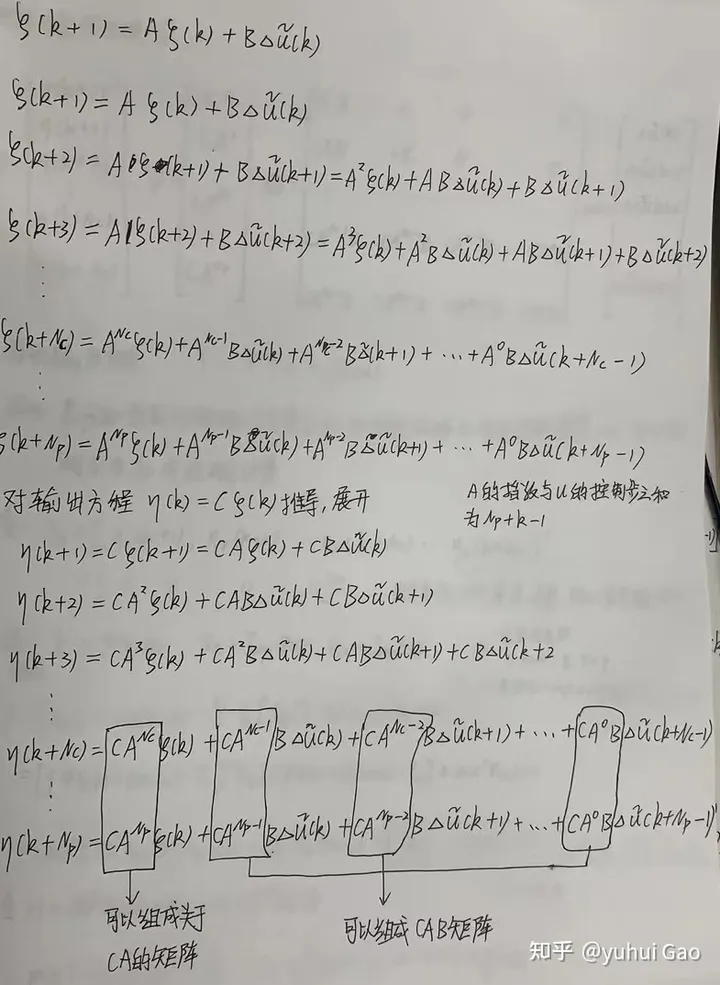 ξ(k+1) = Aξ(k) + BΔũ(k)
ξ(k+1) = Aξ(k) + BΔũ(k)
ξ(k+2) = Aξ(k+1) + BΔũ(k+1) = A²ξ(k) + ABΔũ(k) + BΔũ(k+1)
ξ(k+3) = Aξ(k+2) + BΔũ(k+2) = A³ξ(k) + A²BΔũ(k) + ABΔũ(k+1) + BΔũ(k+2)
⋮
ξ(k+Nc) = A^{Nc}ξ(k) + A^{Nc-1}BΔũ(k) + A^{Nc-2}BΔ̃(k+1) + ⋯ + A⁰BΔũ(k+Nc-1)
⋮
ξ(k+Np) = A^{Np}ξ(k) + A^{Np-1}BΔũ(k) + A^{Np-2}BΔũ(k+1) + ⋯ + A⁰BΔũ(k+Np-1)
对输出方程 η(k) = Cξ(k) 推导, 展开
A的指数与u的控制步之和
为Np+k-1
η(k+1) = Cξ(k+1) = CAξ(k) + CBΔũ(k)
η(k+2) = CA²ξ(k) + CABΔũ(k) + CBΔũ(k+1)
η(k+3) = CA³ξ(k) + CA²BΔũ(k) + CABΔũ(k+1) + CBΔũ(k+2
⋮
η(k+Nc) = CA^{Nc}ξ(k) + CA^{Nc-1}BΔũ(k) + CA^{Nc-2}BΔũ(k+1) + ⋯ + CA⁰BΔũ(k+Nc-1)
⋮
η(k+Np) = CA^{Np}ξ(k) + CA^{Np-1}BΔũ(k) + CA^{Np-2}BΔũ(k+1) + ⋯ + CA⁰BΔũ(k+Np-1)
可以组成关于
CA的矩阵
可以组成 CAB矩阵
知乎 @yuhui Gao